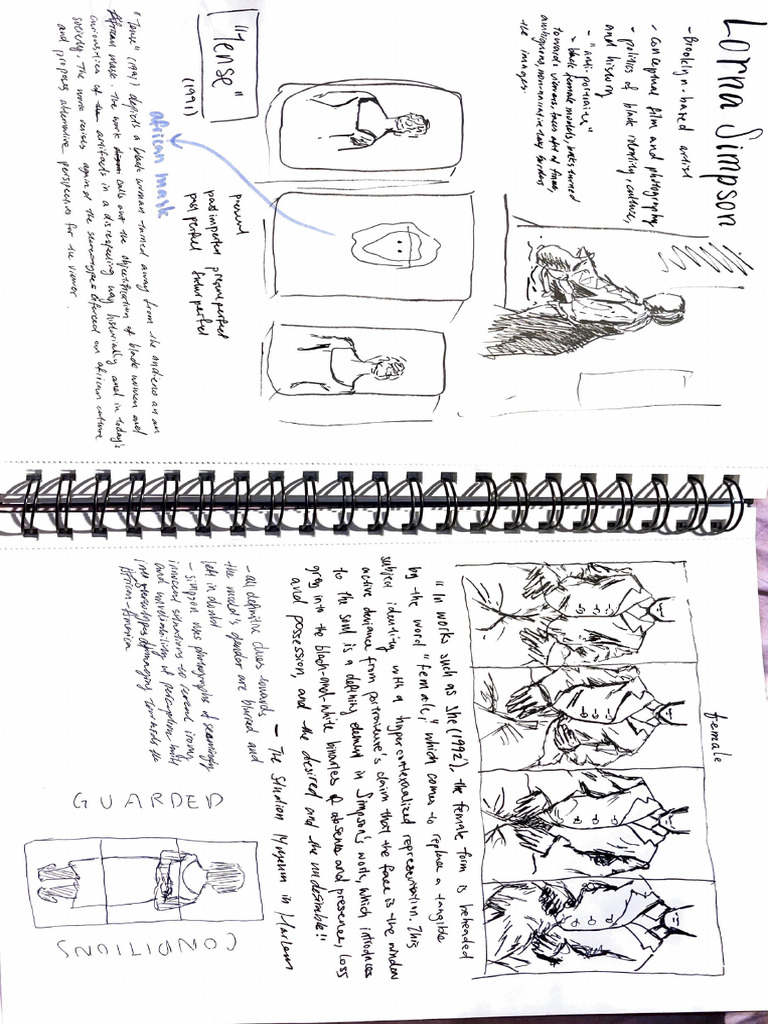 Lorna Simpson
- Brooklyn-based artist
- conceptual film and photography
- politics of black identity, culture,
and history
- "anti-portraits"
- black female models, backs turned
towards viewers, faces out of frame,
ambiguous, non-narrative
the images
"Tense"
(1991)
present
past imperfect present perfect
past perfect future perfect
african mask
"Tense" (1991) depicts a black woman turned away from the audience an an
African mask. The work calls out the objectification of black women and
curiosities of artifacts in a disrespecting way historically and in today's
society. The work against the stereotypes on african culture
and proposes alternative perspectives for the viewer.
female
"In works such as She (1992), the female form is beheaded
by the word "female," which comes to replace a tangible
subject identity with a hyper representation. This
active deviance from portraiture's claim that the face is the window
to the soul is a defining element in Simpson's work, which introduces
grey into the black-and-white binaries of absence and presence, loss
and possession, and the desired and the undesirable"
- The Studio Museum in Harlem
- all definitive clues towards
the model's gender are blurred and
left in doubt
- simpson uses photographs of seemingly
innocent situations to irony
and unreliability of perceptions built
into stereotypes damaging towards
African-America
GUARDED
CONDITIONS